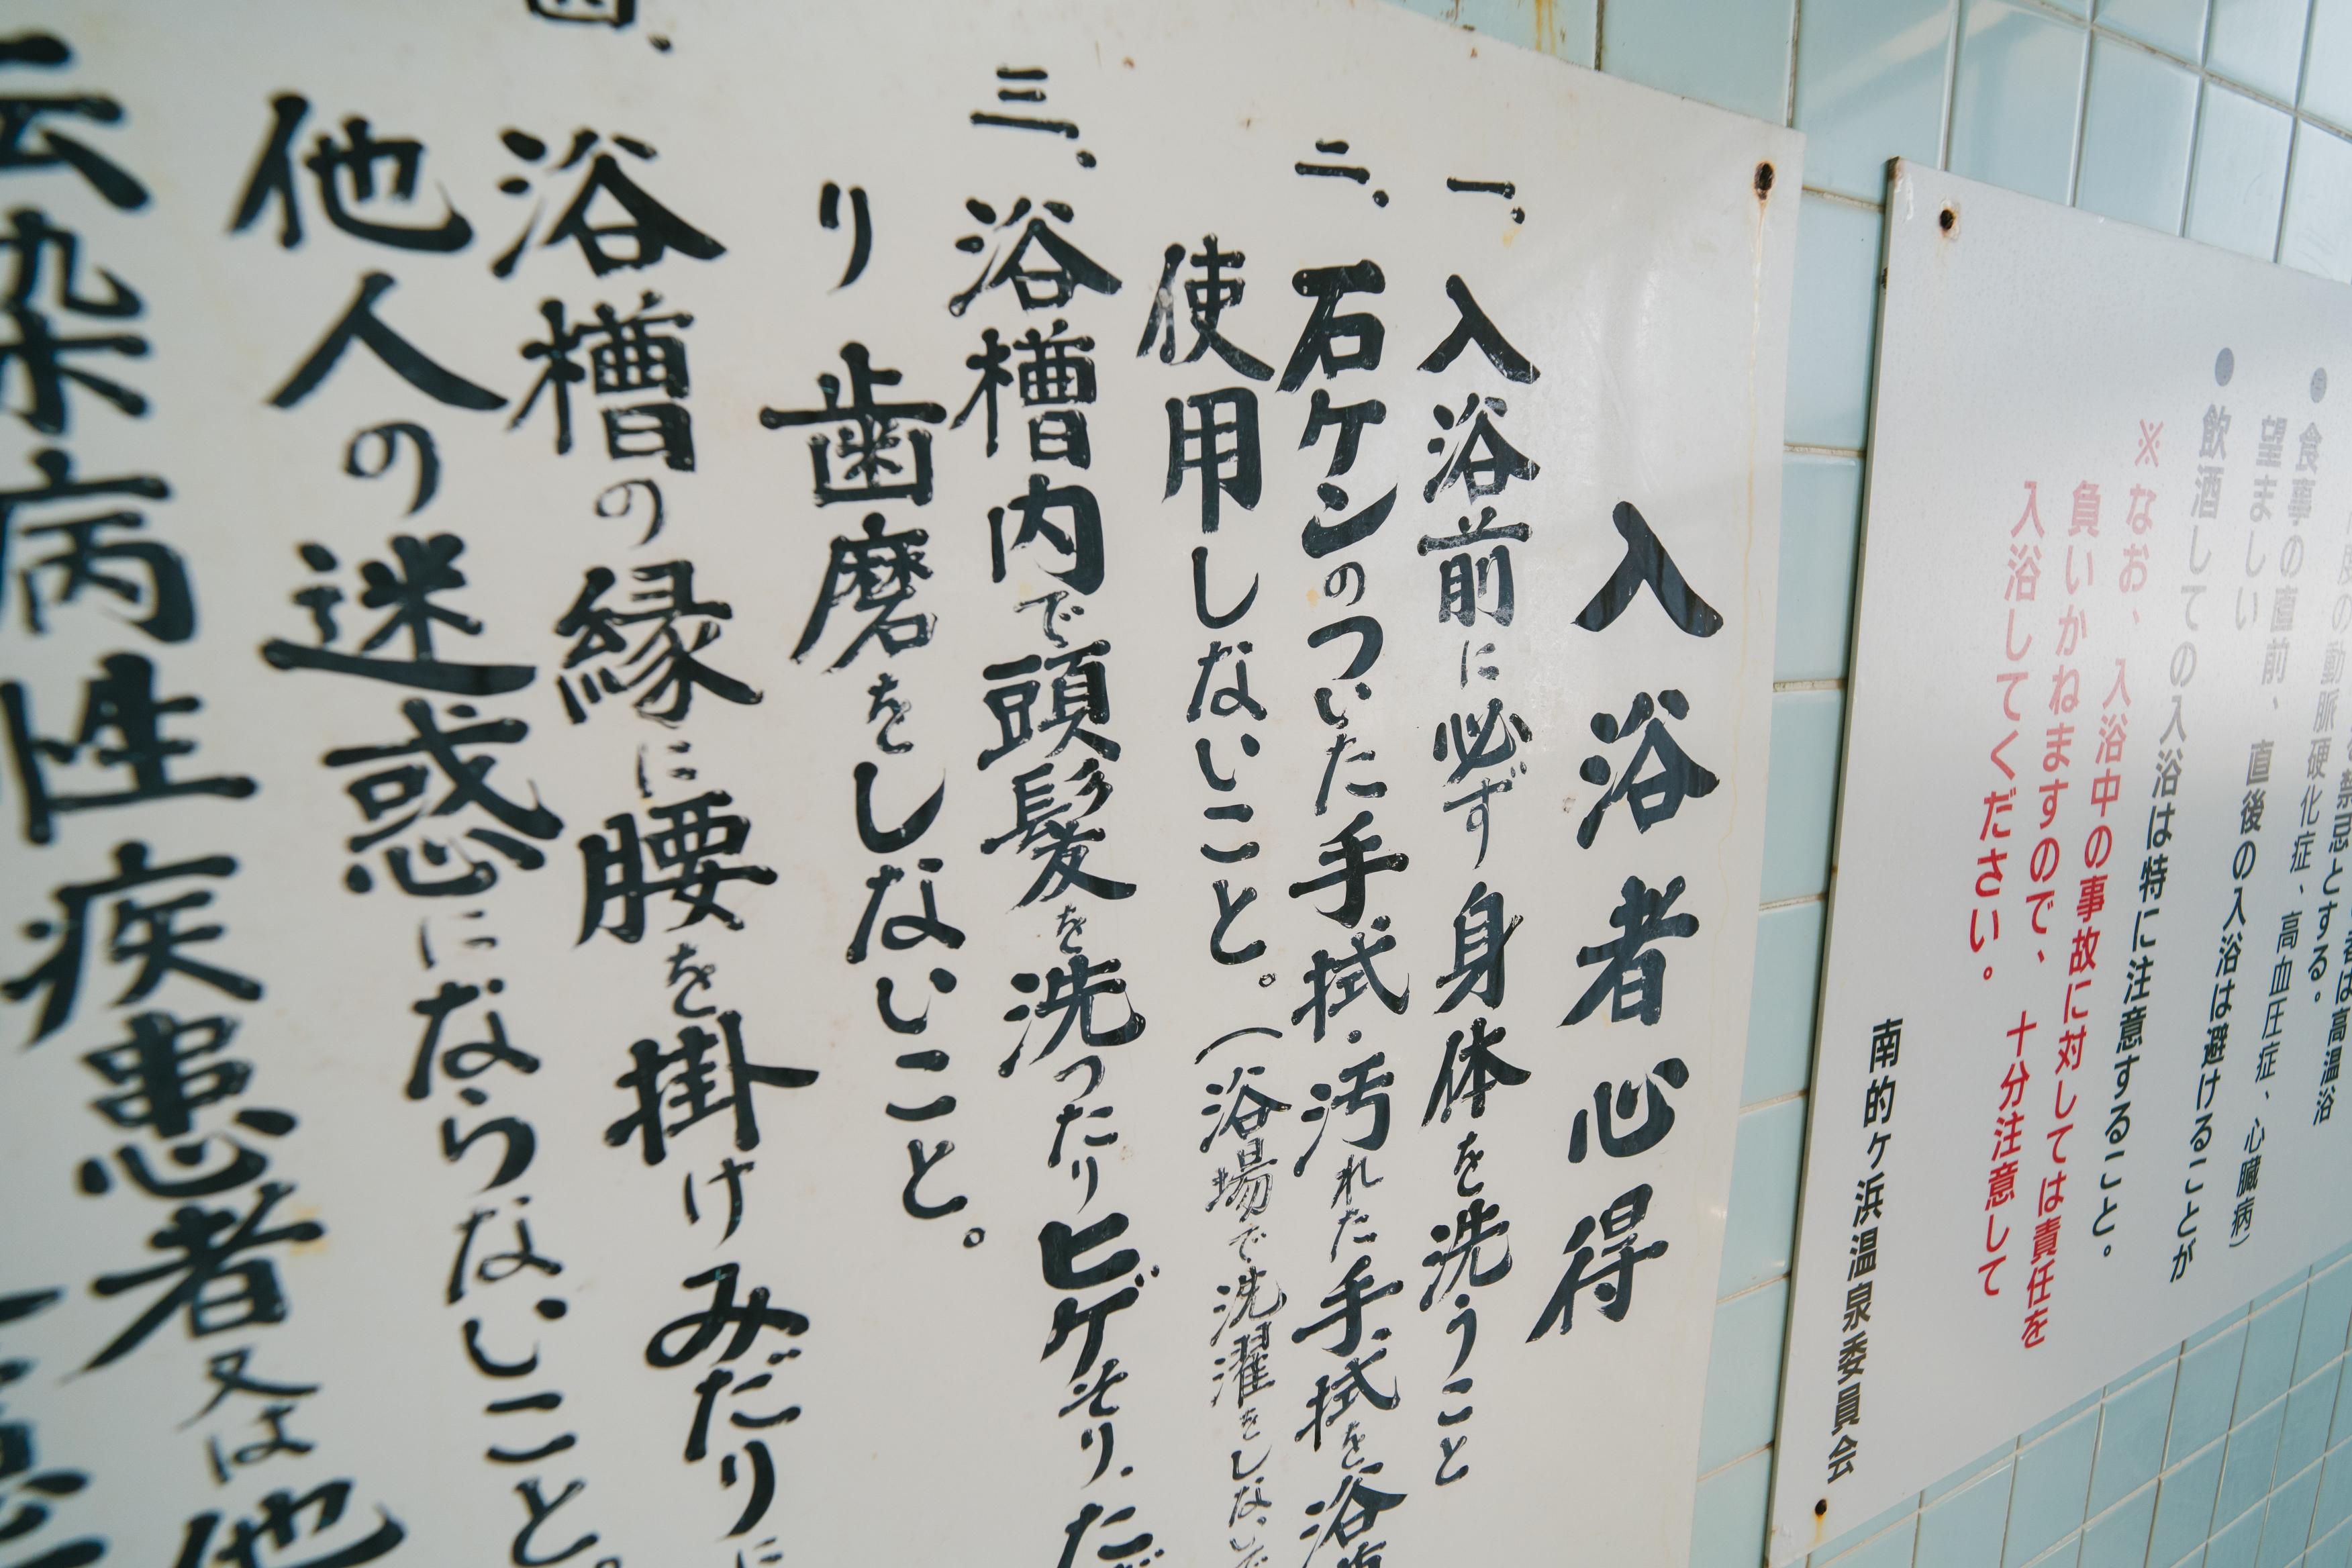 食事の直前、直後の入浴は避けることが
望ましい
飲酒しての入浴は特に注意すること。
※なお、入浴中の事故に対しては責任を
負いかねますので、十分注意して
入浴してください。
南的ケ浜温泉委員会
入浴者心得
一、入浴前に必ず身体を洗うこと
二、石ケンのついた手拭・汚れた手拭を浴
使用しないこと。(浴場で洗濯をしない
三、浴槽内で頭髪を洗ったりヒゲそり、
り歯磨をしないこと。
浴槽の縁に腰を掛けみだりに
他人の迷惑にならないこと。
伝染病性疾患者又は他